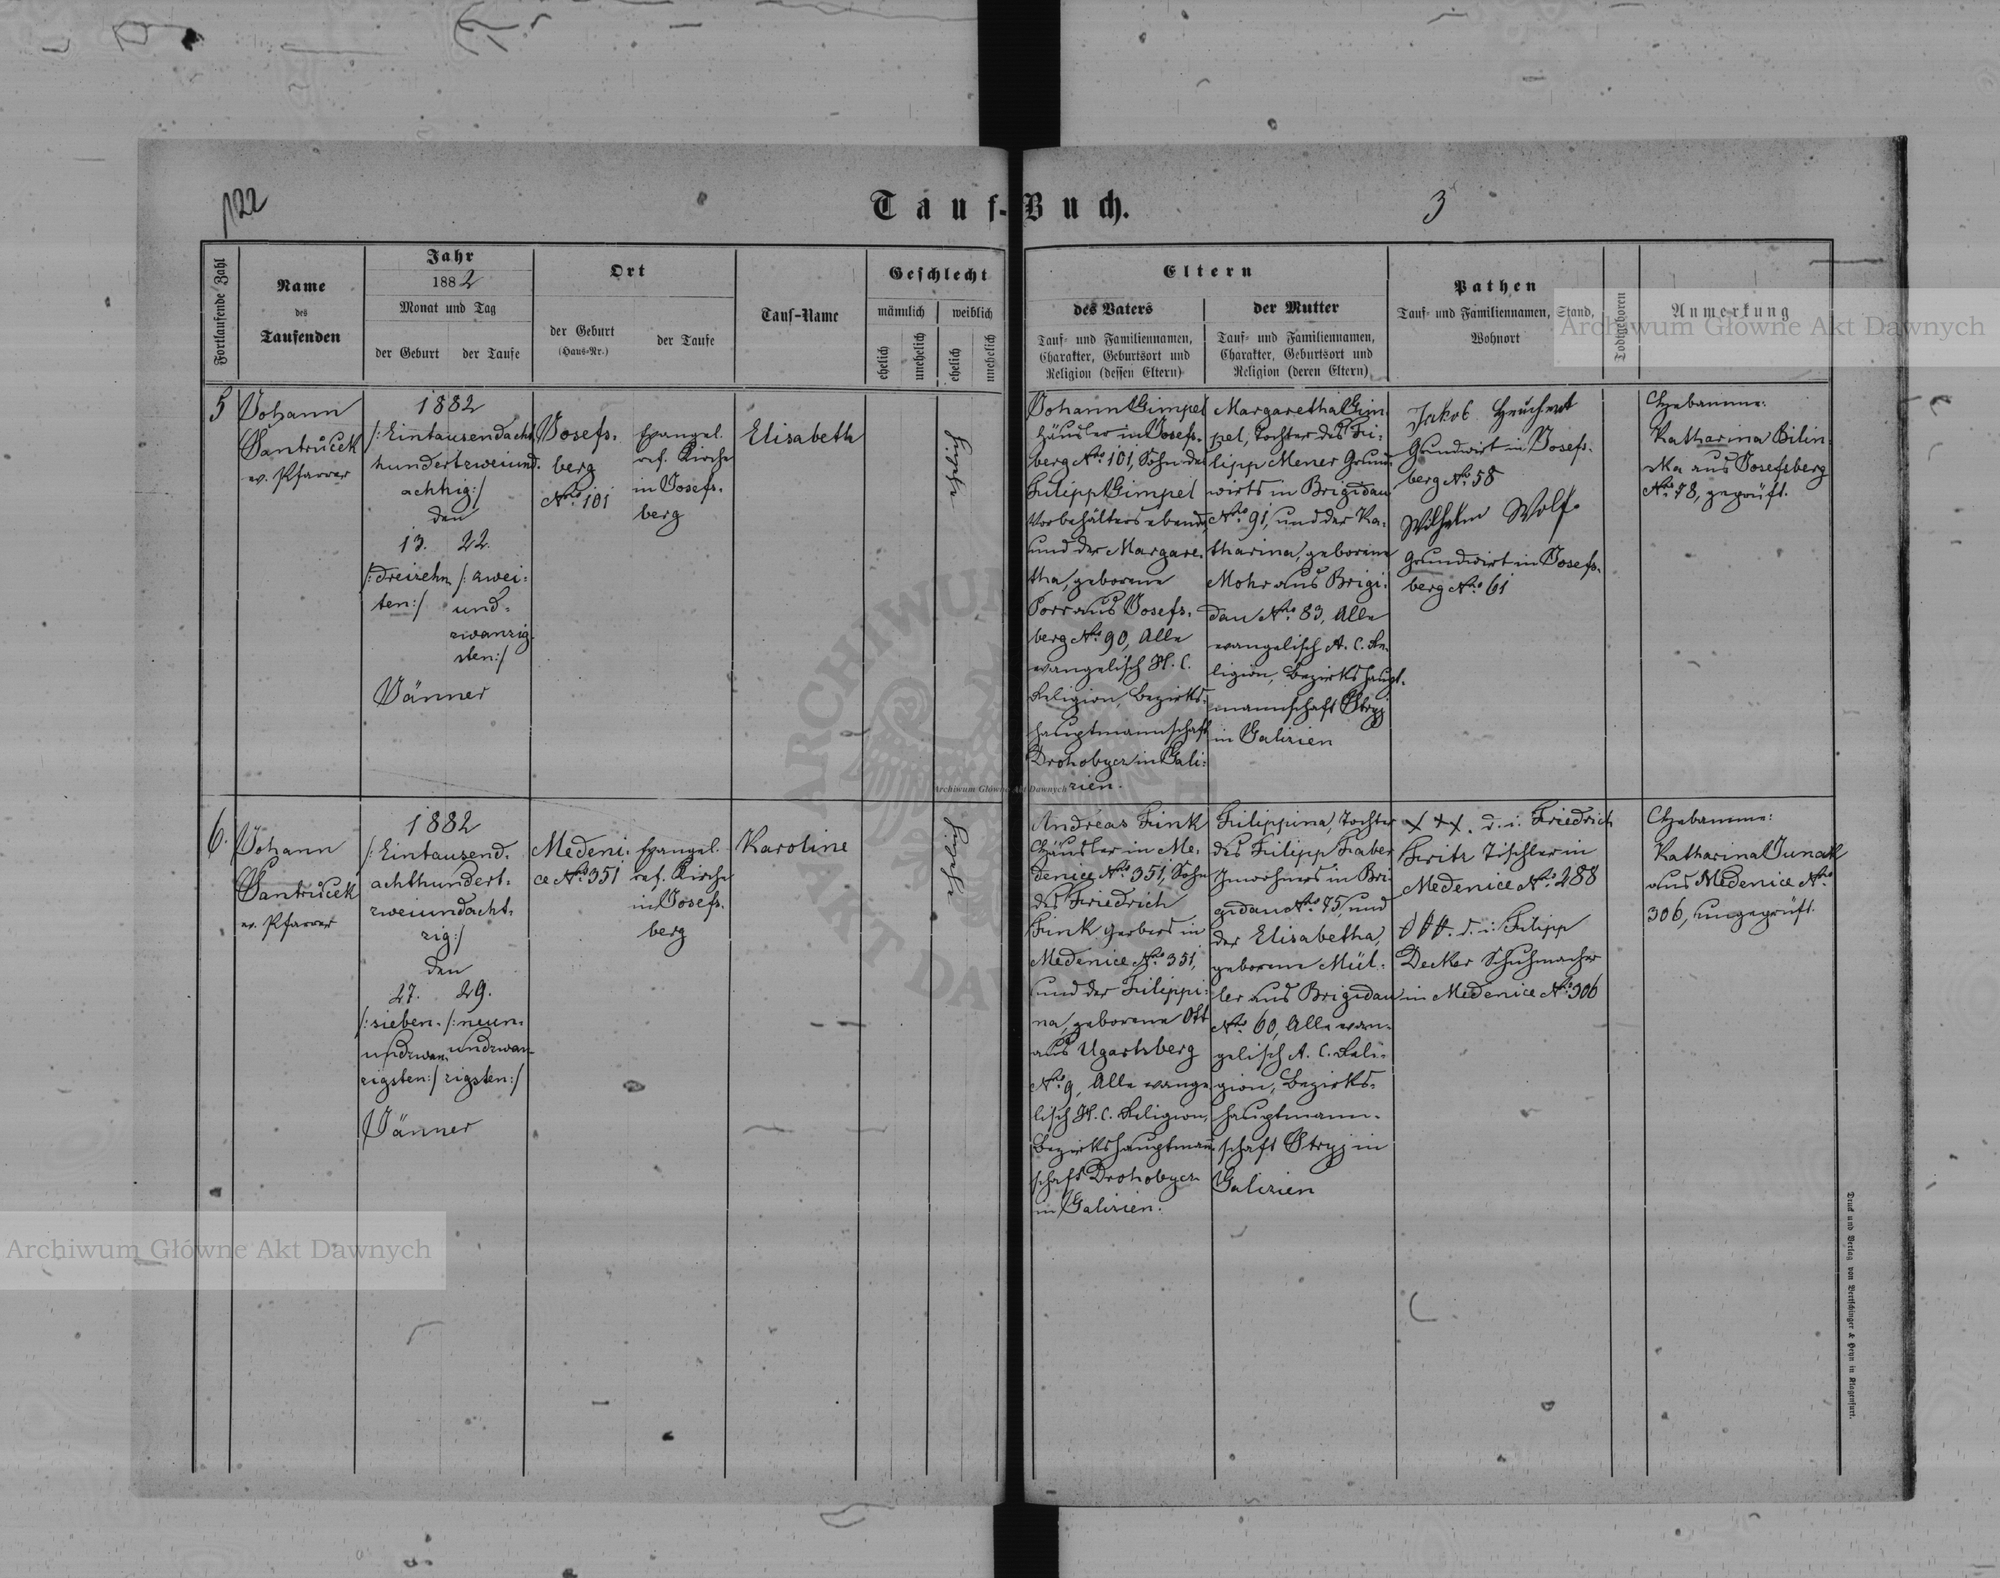 122
Tauf-Buch.
3
Fortlaufende Zahl
Name
des
Taufenden
Jahr
1882
Monat und Tag
der Geburt
der Taufe
Ort
der Geburt
(Haus-Nr.)
der Taufe
Tauf-Name
Geschlecht
männlich
weiblich
ehelich
unehelich
ehelich
unehelich
Eltern
des Vaters
Tauf- und Familiennamen,
Charakter, Geburtsort und
Religion (dessen Eltern)
der Mutter
Tauf- und Familiennamen,
Charakter, Geburtsort und
Religion (deren Eltern)
Pathen
Tauf- und Familiennamen, Stand,
Wohnort
Todtgeboren
Anmerkung
5
Johann
Jantrůcek
ev. Pfarrer
1882
/: Eintausendacht
hundertzweiund.
achtzig:/
den
13. 22.
/: dreizehn /: zwei:
ten:/ und=
zwanzig
sten:/
Jänner
Josefs.
berg
Nro 101
Evangel.
ref. Kirche
in Josefs.
berg
Elisabeth
Johann Gimpel
Häusler in Josefs.
berg Nro 101, Sohn des
Filipp Gimpel
Vorbehälters ebenda,
und der Margare.
tha, geborene
Porr aus Josefs.
berg Nro 90, Alle
evangelisch H. C.
Religion, Bezirks.
hauptmannschaft
Drohobycz in Gali:
zien.
Margaretha Gim
pel, Tochter des Fi:
lipp Mener Grund
wirts in Brigidau
Nro 91, und der Ka:
tharina, geborene
Mohr aus Brigi:
dau Nro 83, Alle
evangelisch A. C. Re.
ligion, Bezirkshaupt.
mannschaft Stryj
in Galizien
Jakob Heuchert
Grundwirt in Josefs.
berg No 58
Wilhelm Wolf.
Grundwirt in Josefs.
berg Nro 61
Hebamme:
Katharina Bilin:
ska aus Josefsberg
Nro 78, geprüft.
6.
Johann
Jantrůcek
ev. Pfarrer
1882
/: Eintausend.
achthundert.
zweiundacht.
zig:/
den
27. 29.
/: sieben. /: neun.
undzwan undzwan
zigsten:/ zigsten:/
Jänner
Medeni:
ce Nro 351
Evangel.
ref. Kirche
in Josefs.
berg
Karoline
Andreas Fink
Häusler in Me.
denice Nro 351, Sohn
des Friedrich
Fink Gerbers in
Medenice Nro 351,
und der Filippi:
na, geborene Ott
aus Ugartsberg
Nro 9, Alle evange
lisch H. C. Religion,
Bezirkshauptmann
schaft Drohobycz
in Galizien.
Filippina, Tochter
des Filipp Faber
Inwohners in Bri
gidau Nro 75, und
der Elisabetha,
geborene Mül:
ler aus Brigidau
Nro 60, Alle evan.
gelisch A. C. Reli=
gion, Bezirks.
hauptmann.
schaft Stryj in
Galizien
+++. d. i. Friedrich
Fritz Tischler in
Medenice Nro 288
+++. d. i. Filipp
Decker Schuhmacher
in Medenice Nro 306
Hebamme:
Katharina Junak
aus Medenice Nro
306, ungeprüft.
Druck und Verlag von Bertschinger & Heyn in Klagenfurt.
Archiwum Główne Akt Dawnych
Archiwum Główne Akt Dawnych
Archiwum Główne Akt Dawnych